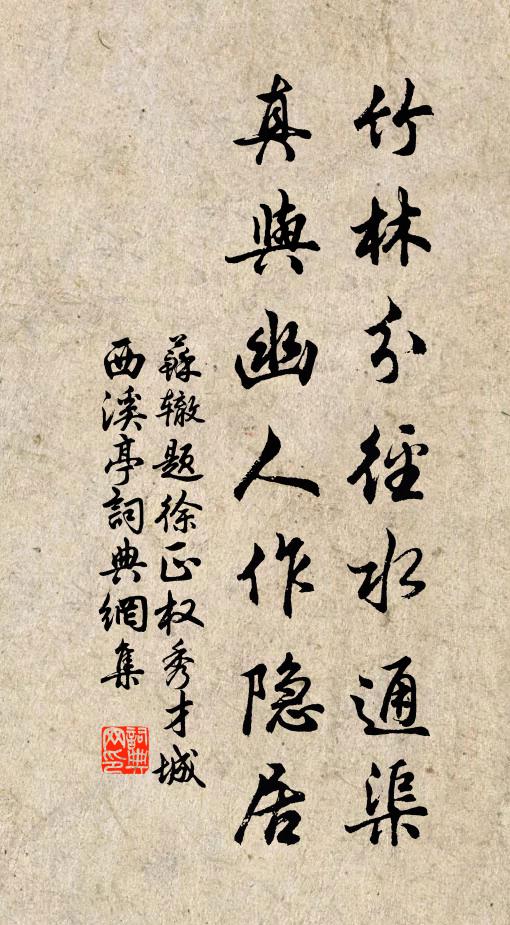 竹林分径水通渠
真與幽人作隐居
蘇辙题徐正权秀才城
西溪亭詞典網集
詞典网印